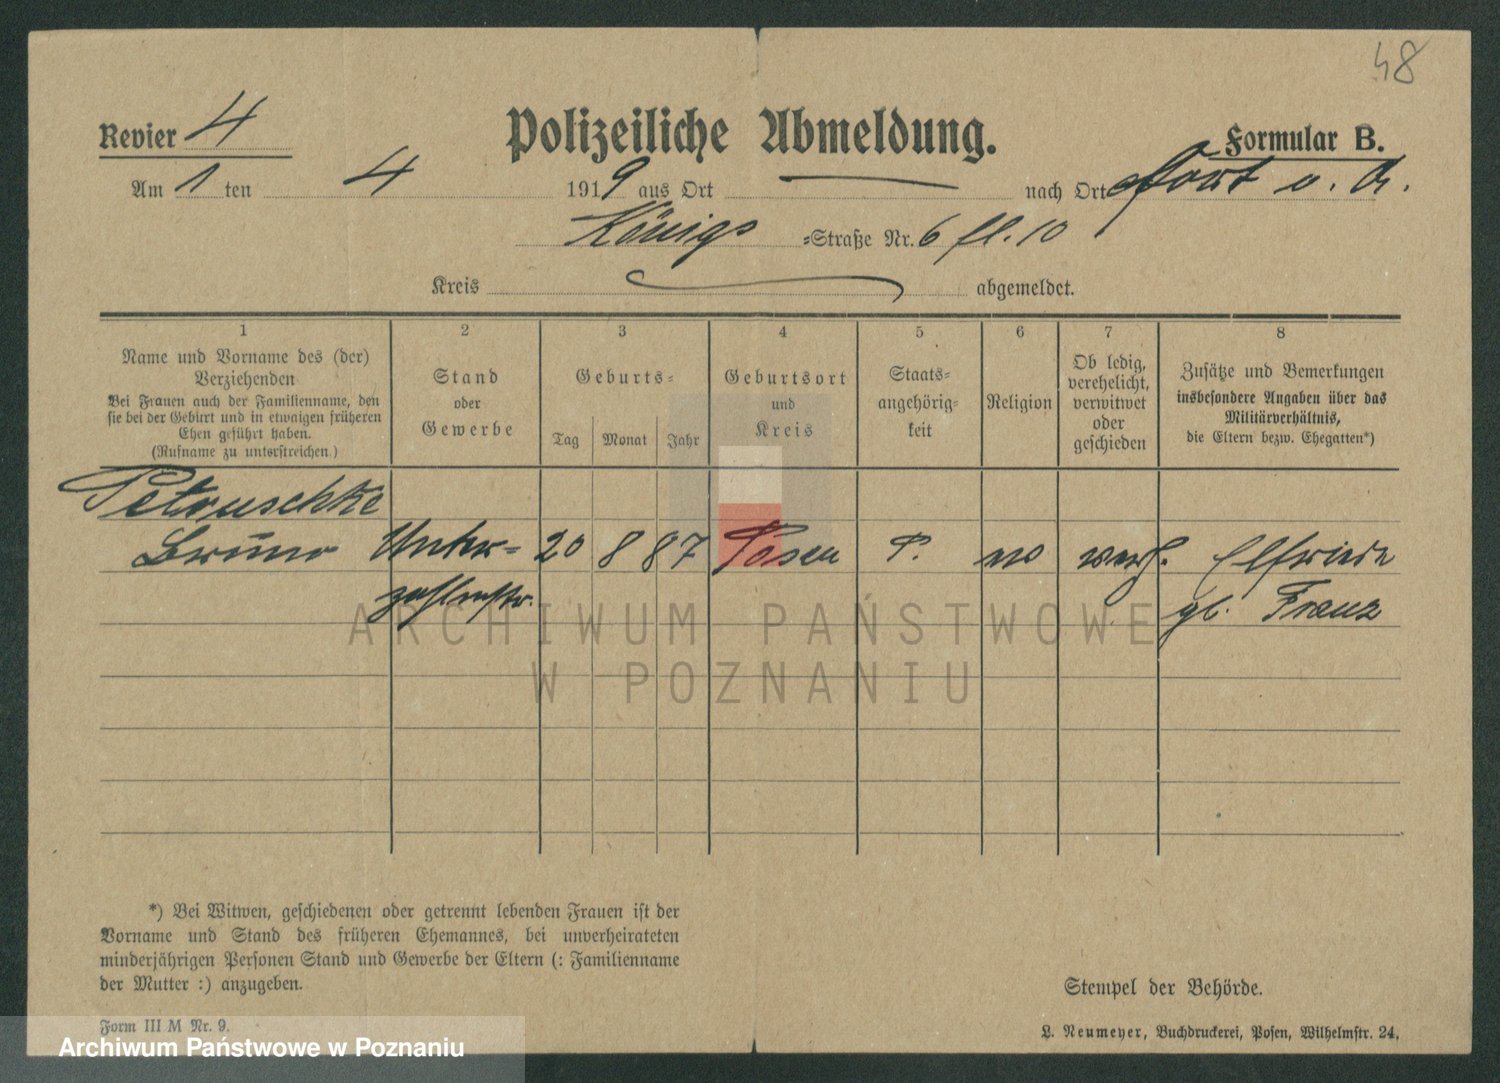 48
Revier 4
Polizeiliche Abmeldung.
Formular B.
Am 1 ten 4 1919 aus Ort — nach Ort
Königs =Straße Nr. 6 fl. 10
Kreis abgemeldet.
1 2 3 4 5 6 7 8
Name und Vorname des (der)
Verziehenden
Bei Frauen auch der Familienname, den
sie bei der Geburt und in etwaigen früheren
Ehen geführt haben.
(Rufname zu unterstreichen.)
Stand
oder
Gewerbe
Geburts=
Tag Monat Jahr
Geburtsort
und
Kreis
Staats=
angehörig=
keit
Religion
Ob ledig,
verehelicht,
verwitwet
oder
geschieden
Zusätze und Bemerkungen
insbesondere Angaben über das
Militärverhältnis,
die Eltern bezw. Ehegatten*)
Petruschke
Bruno Unter= 20 8 87 Posen P. verh. Elfriede
zahlmstr. gb. Franz
ARCHIWUM PAŃSTWOWE
W POZNANIU
*) Bei Witwen, geschiedenen oder getrennt lebenden Frauen ist der
Vorname und Stand des früheren Ehemannes, bei unverheirateten
minderjährigen Personen Stand und Gewerbe der Eltern (: Familienname
der Mutter :) anzugeben.
Stempel der Behörde.
Form III M Nr. 9.
L. Neumeyer, Buchdruckerei, Posen, Wilhelmstr. 24.
Archiwum Państwowe w Poznaniu